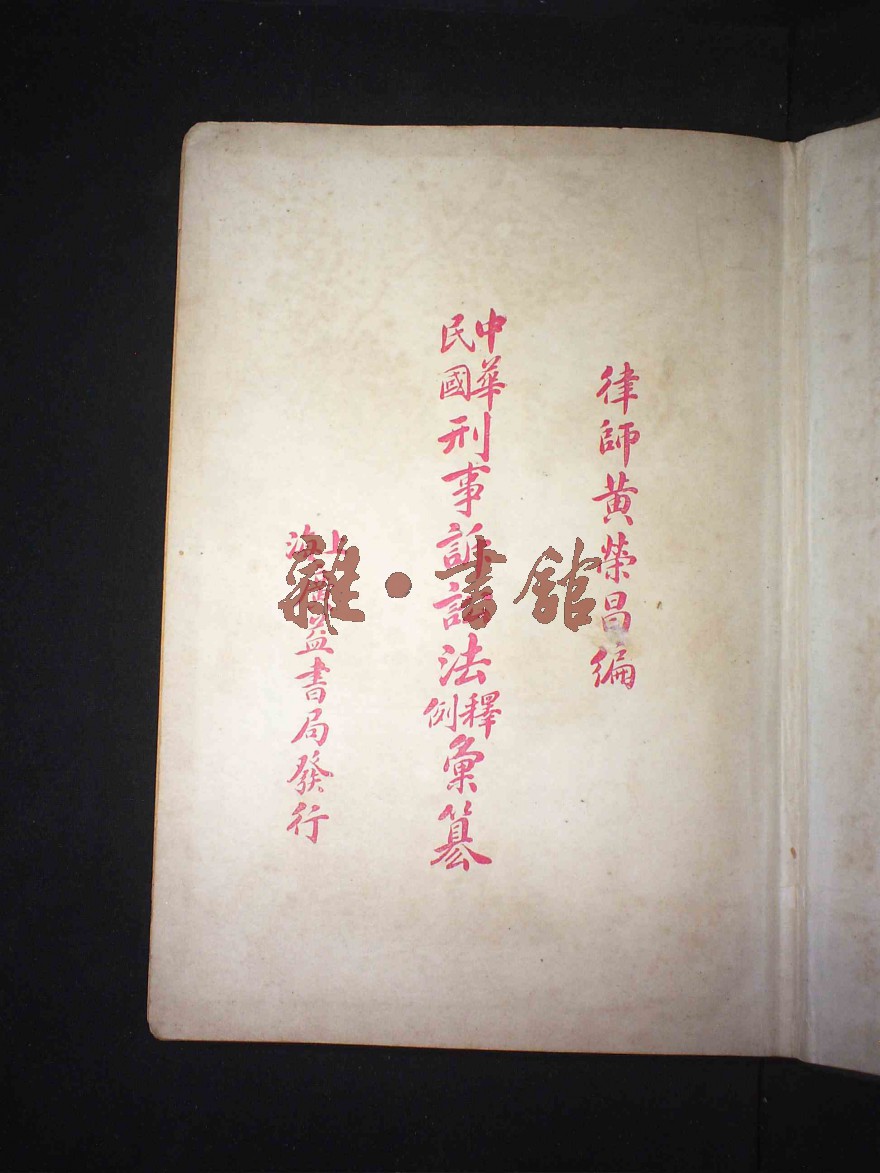 律師黃榮昌編
中華民國刑事訴訟法釋例彙纂
上海廣益書局發行
雜·書館